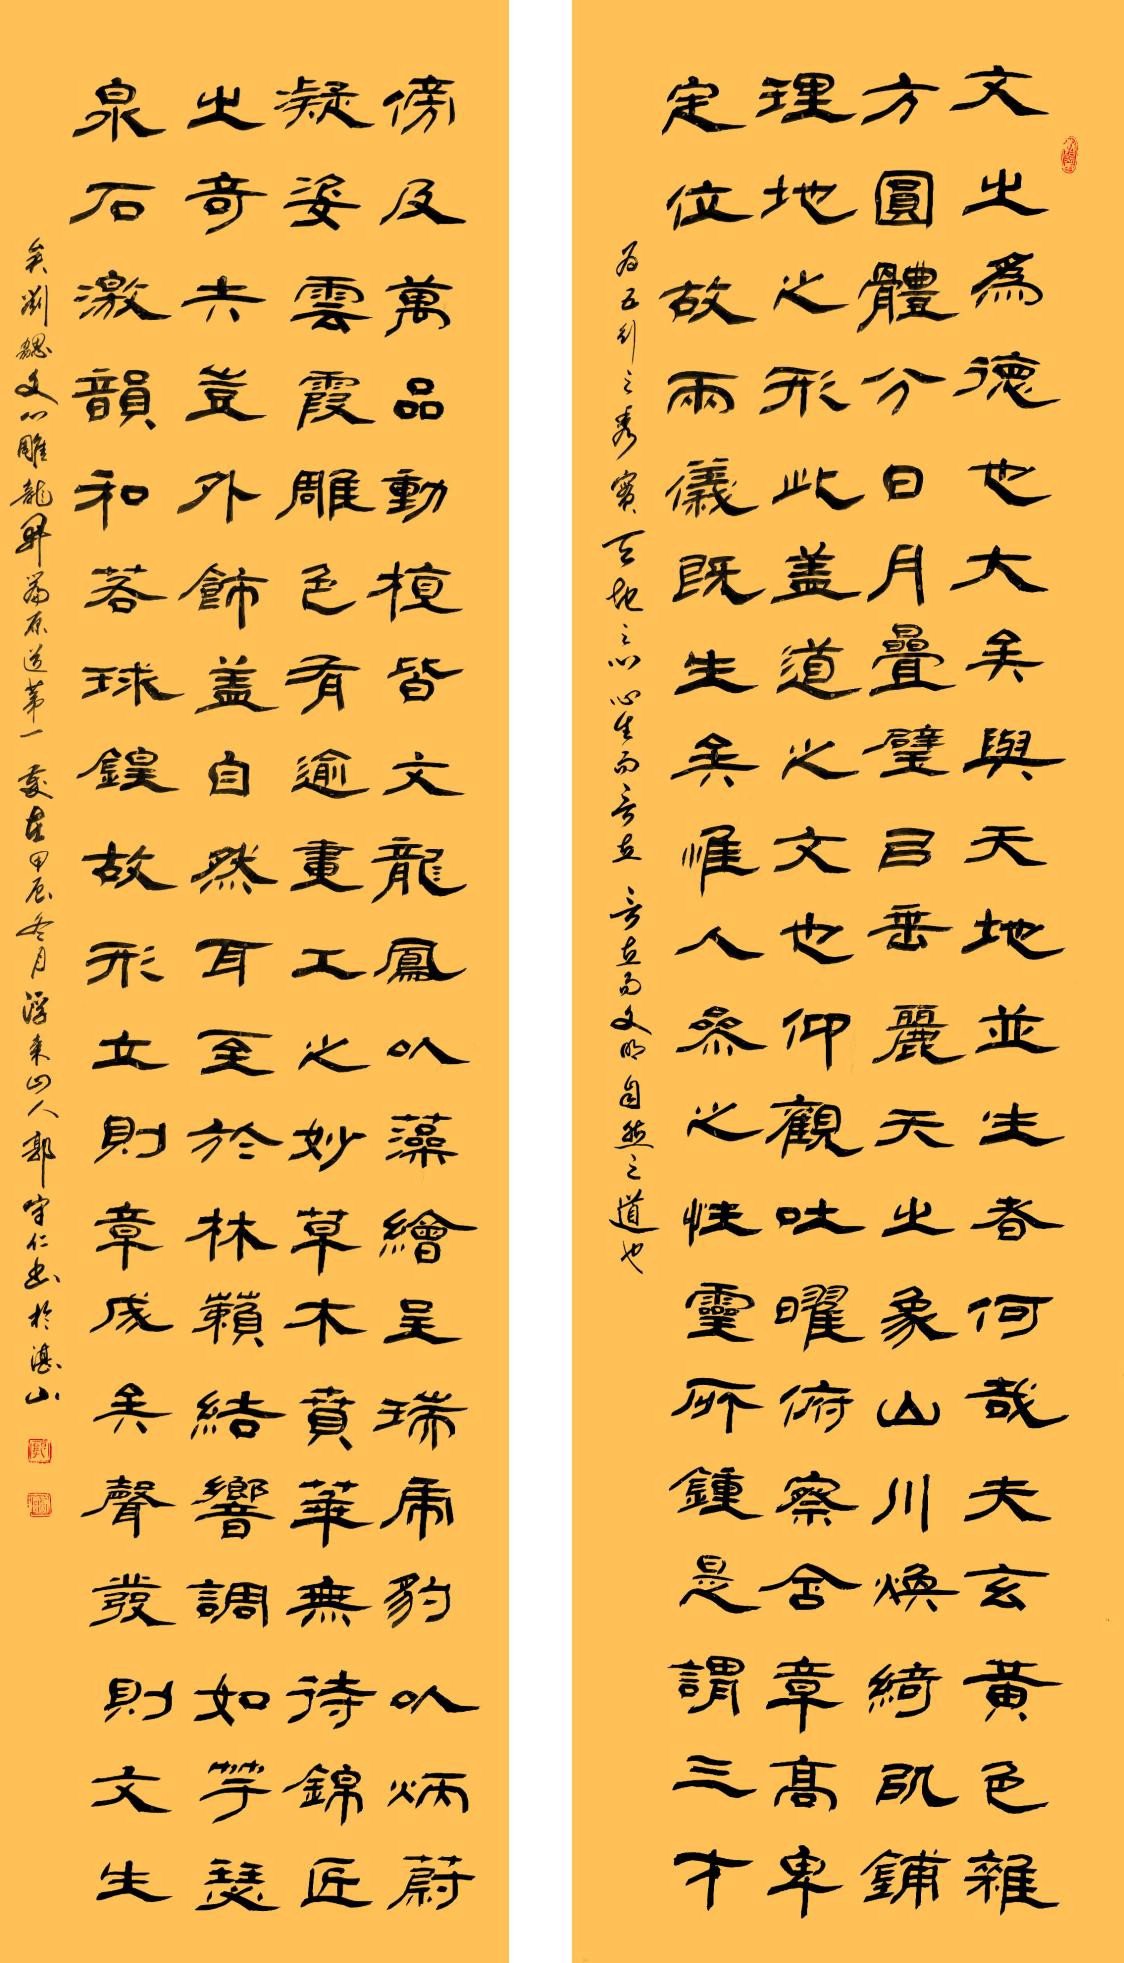 文之為德也大矣與天地並生者何哉夫玄黃色雜
方圓體分日月疊璧㠯垂麗天之象山川煥綺㠯鋪
理地之形此蓋道之文也仰觀吐曜俯察含章高卑
定位故兩儀既生矣惟人參之性靈所鍾是謂三才
為五行之秀實天地之心心生而言立言立而文明自然之道也
傍及萬品動植皆文龍鳳以藻繪呈瑞虎豹以炳蔚
凝姿雲霞雕色有逾畫工之妙草木賁華無待錦匠
之奇夫豈外飾蓋自然耳至於林籟結響調如竽瑟
泉石激韻和若球鍠故形立則章成矣聲發則文生
矣劉勰文心雕龍開篇原道第一歲在甲辰冬月浮來山人郭守仁書於湛山